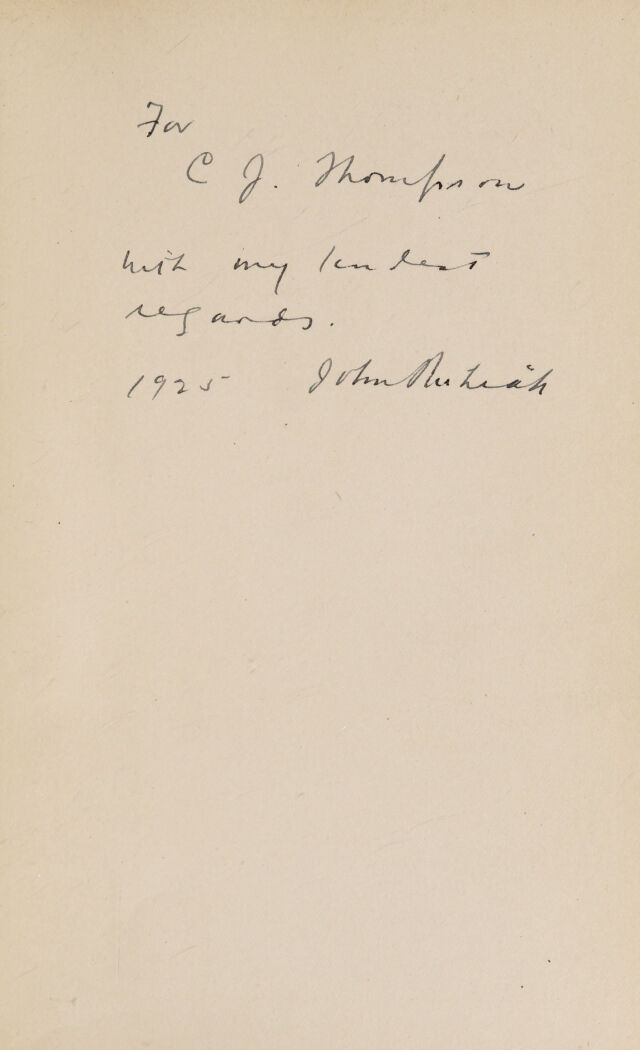 For
C J. Thompson
with my kindest
regards.
1925 John Ruhräh